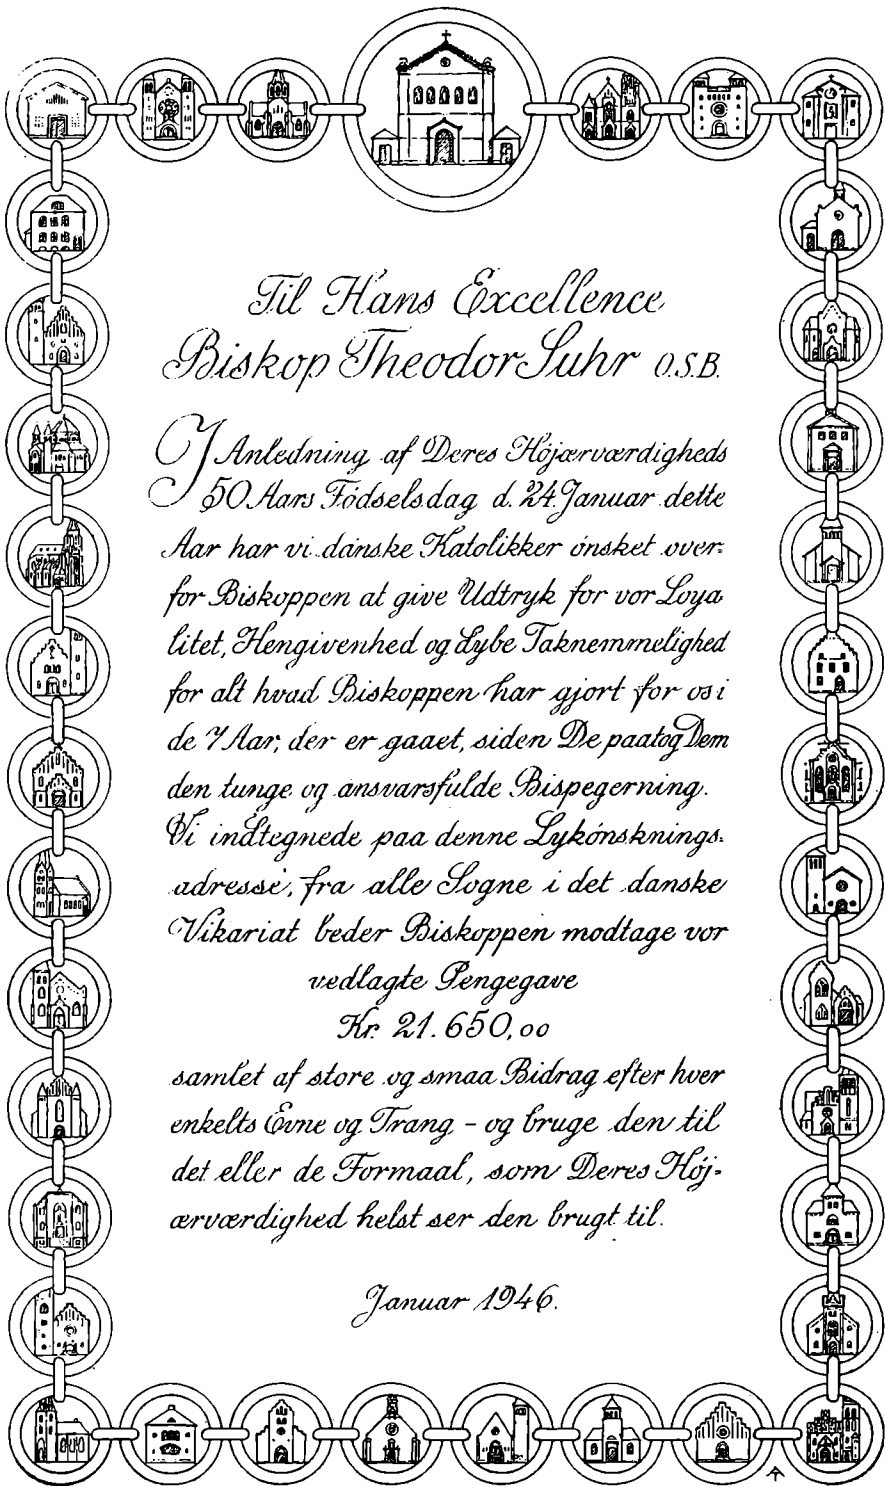 Til Hans Excellence
Biskop Theodor Suhr O.S.B.
I Anledning af Deres Højærværdigheds
50 Aars Fødselsdag d. 24. Januar dette
Aar har vi danske Katolikker ønsket over-
for Biskoppen at give Udtryk for vor Loya
litet, Hengivenhed og dybe Taknemmelighed
for alt hvad Biskoppen har gjort for os i
de 7 Aar, der er gaaet, siden De paatog Dem
den tunge og ansvarsfulde Bispegerning.
Vi indtegnede paa denne Lykønsknings-
adresse, fra alle Sogne i det danske
Vikariat beder Biskoppen modtage vor
vedlagte Pengegave
Kr. 21.650,00
samlet af store og smaa Bidrag efter hver
enkelts Evne og Trang - og bruge den til
det eller de Formaal, som Deres Høj-
ærværdighed helst ser den brugt til.
Januar 1946.